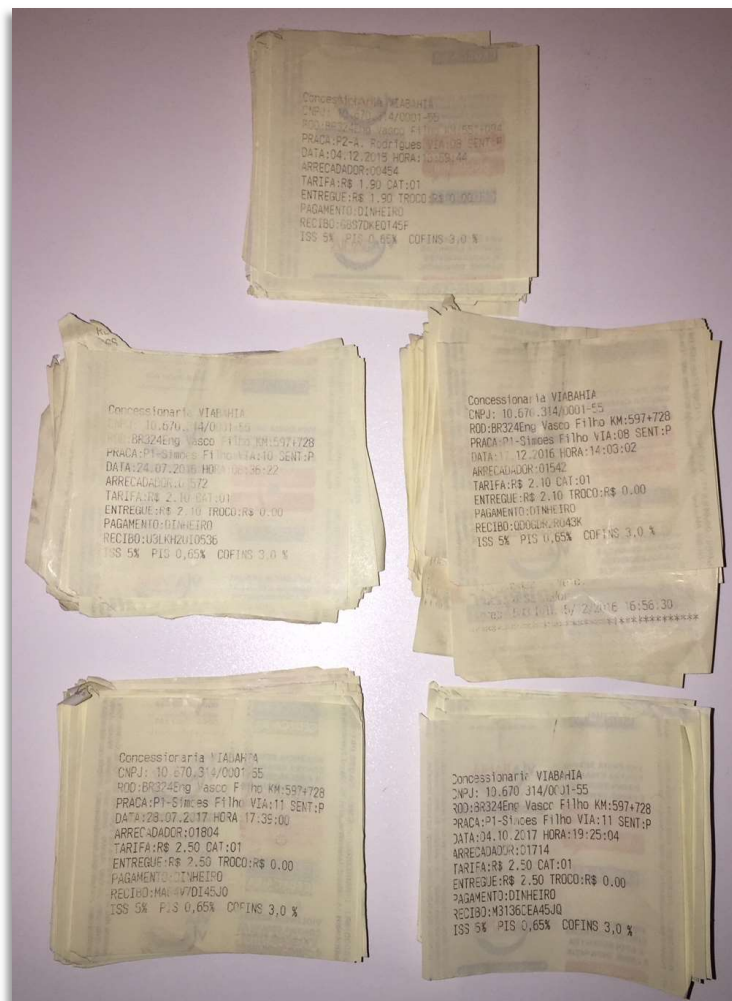 Concessionaria VIABAHIA
CNPJ: 10.670. 4/0001-55
ROD:BR324Eng Vasco Filho
PRACA:P2-A. Rodrigues VIA:08 SENT:P
DATA:04.12.2015 HORA: :44
ARRECADADOR:00454
TARIFA:R$ 1.90 CAT:01
ENTREGUE:R$ 1.90 TROCO:R$ 0.00
PAGAMENTO:DINHEIRO
ISS 5% PIS 0,65% COFINS 3,0 %
Concessionaria VIABAHIA
CNPJ: 10.670. 14/0001-55
ROD:BR324Eng Vasco Filho KM:597+728
PRACA:P1-Simoes Filho VIA:10 SENT:P
DATA:24.07.2016 HORA :36:22
ARRECADADOR:01572
TARIFA:R$ 2.10 CAT:01
ENTREGUE:R$ 2.10 TROCO:R$ 0.00
PAGAMENTO:DINHEIRO
RECIBO:U3LKH2UI0536
ISS 5% PIS 0,65% COFINS 3,0 %
Concessionaria VIABAHIA
CNPJ: 10.670.314/0001-55
ROD:BR324Eng Vasco Filho KM:597+728
PRACA:P1-Simoes Filho VIA:08 SENT:P
DATA: .12.2016 HORA:14:03:02
ARRECADADOR:01542
TARIFA:R$ 2.10 CAT:01
ENTREGUE:R$ 2.10 TROCO:R$ 0.00
PAGAMENTO:DINHEIRO
ISS 5% PIS 0,65% COFINS 3,0 %
/12/2016 16:56:30
Concessionaria VIABAHIA
CNPJ: 10.670.314/0001-55
ROD:BR324Eng Vasco Filho KM:597+728
PRACA:P1-Simoes Filho VIA:11 SENT:P
DATA:28.07.2017 HORA:17:39:00
ARRECADADOR:01804
TARIFA:R$ 2.50 CAT:01
ENTREGUE:R$ 2.50 TROCO:R$ 0.00
PAGAMENTO:DINHEIRO
ISS 5% PIS 0,65% COFINS 3,0 %
Concessionaria VIABAHIA
CNPJ: 10.670.314/0001-55
ROD:BR324Eng Vasco Filho KM:597+728
PRACA:P1-Simoes Filho VIA:11 SENT:P
DATA:04.10.2017 HORA:19:25:04
ARRECADADOR:01714
TARIFA:R$ 2.50 CAT:01
ENTREGUE:R$ 2.50 TROCO:R$ 0.00
PAGAMENTO:DINHEIRO
RECIBO:M3136CEA45JQ
ISS 5% PIS 0,65% COFINS 3,0 %